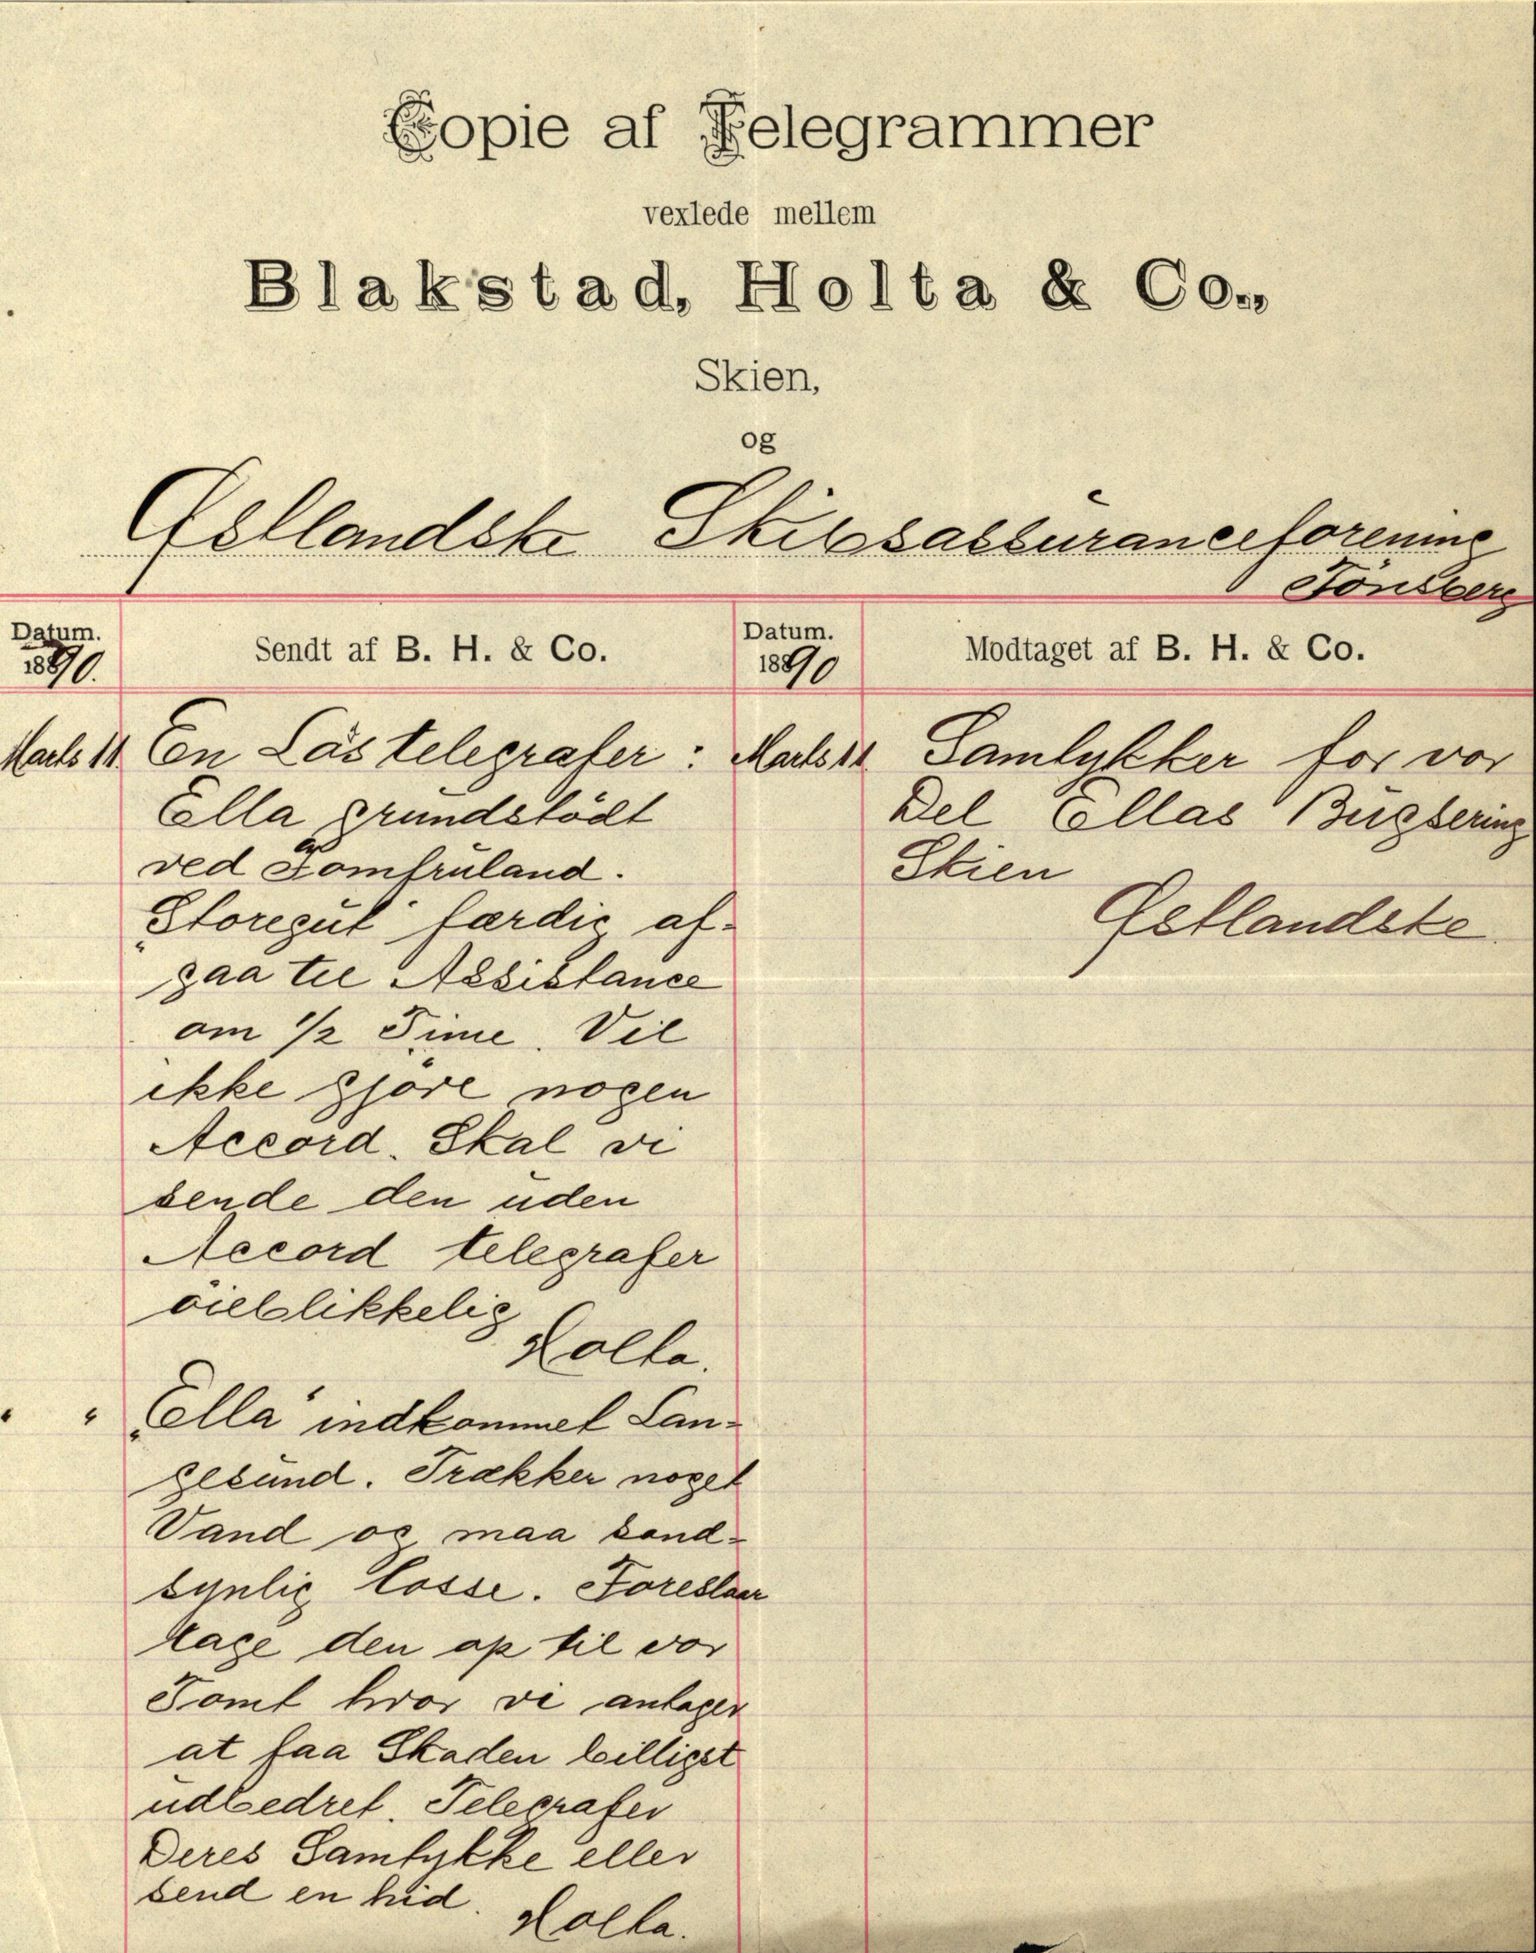 Copie af Telegrammer
vexlede mellem
Blakstad, Holta & Co.,
Skien,
og
Østlandske Skibsassuranceforening
Tönsberg
Datum.
1890.
Sendt af B. H. & Co.
Datum.
1890
Modtaget af B. H. & Co.
Marts 11
En Lös telegrafer :
Ella grundstödt
ved Jomfruland.
"Storegut" færdig af-
gaa til Assistance
om 1/2 Time. Vil
ikke gjöre nogen
Accord. Skal vi
sende den uden
Accord telegrafer
öieblikkelig
Holta.
" "
"Ella" indkommet Lan-
gesund. Trækker noget
Vand og maa sand-
synlig losse. Foreslaar
tage den op til vor
Tomt hvor vi antager
at faa Skaden billigst
udbedret. Telegrafer
Deres Samtykke eller
send en hid.
Holta.
Marts 11
Samtykker for vor
Del Ellas Bugsering
Skien
Østlandske